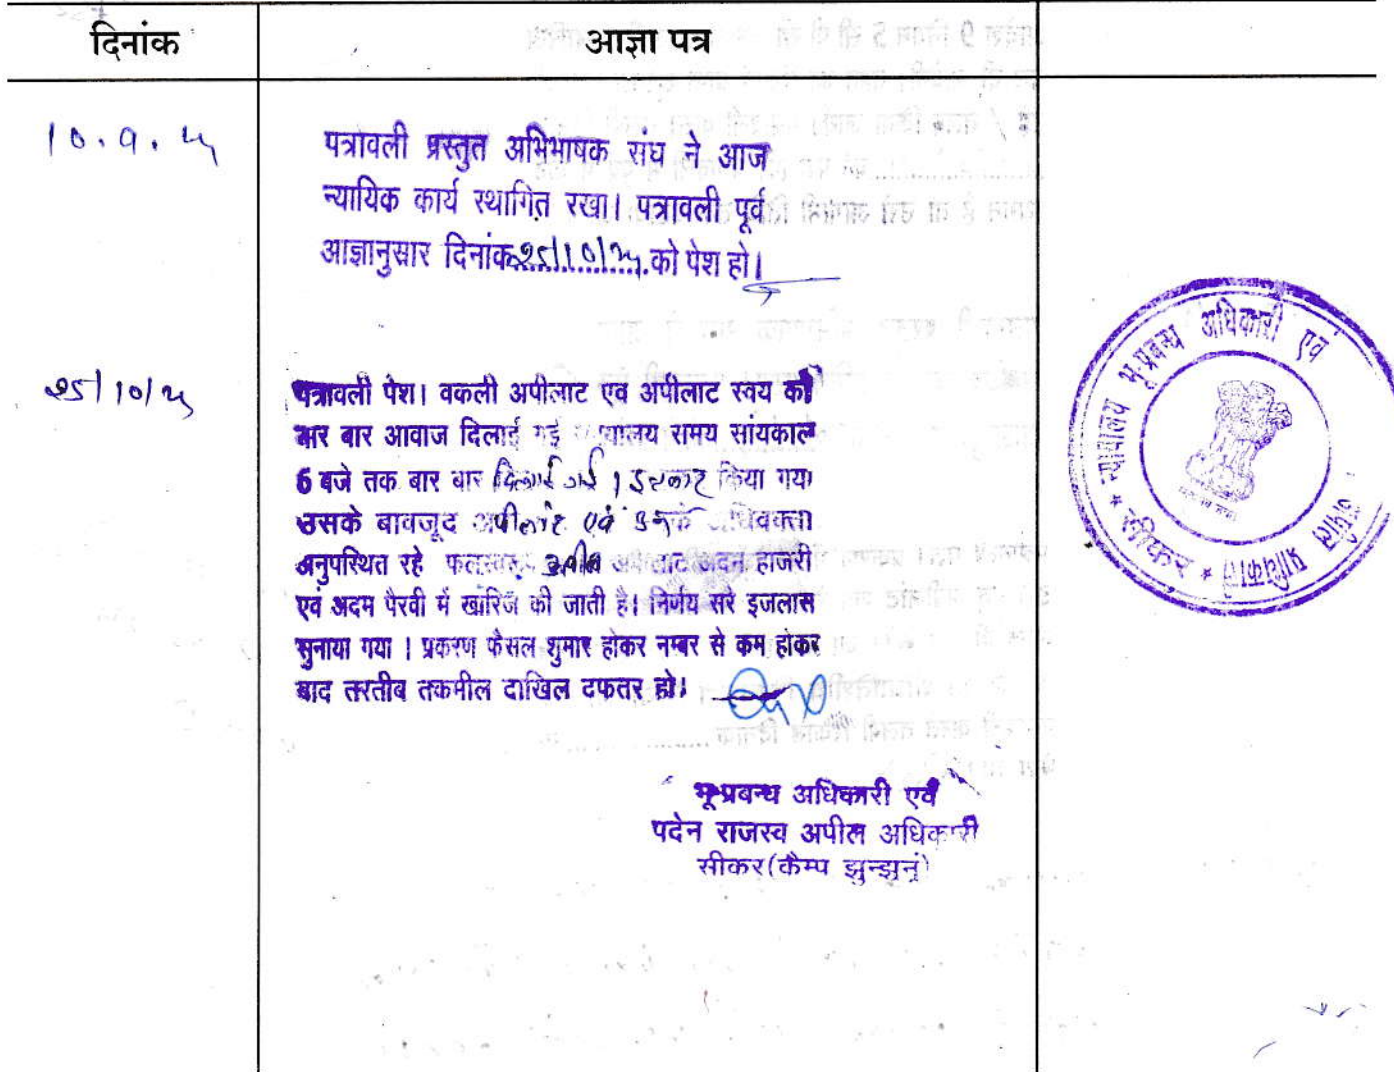 दिनांक
आज्ञा पत्र
10.9.24
पत्रावली प्रस्तुत अभिभाषक संघ ने आज
न्यायिक कार्य स्थागित रखा। पत्रावली पूर्व
आज्ञानुसार दिनांक 25/10/24 को पेश हो।
25/10/24
पत्रावली पेश। वकली अपीलाट एव अपीलाट स्वय को
बार बार आवाज दिलाई गई समय सांयकाल
6 बजे तक बार बार दिलाई गई। इन्तजार किया गया
उसके बावजूद अपीलांट एवं उनके अधिवक्ता
अनुपस्थित रहे फलस्वरूप अपील अदन हाजरी
एवं अदम पैरवी में खारिज की जाती है। निर्णय सरे इजलास
सुनाया गया । प्रकरण फैसल शुमार होकर नम्बर से कम होकर
बाद तरतीब तकमील दाखिल दफतर हो।
भू-प्रबन्ध अधिकारी एवं
पदेन राजस्व अपील अधिकारी
सीकर(कैम्प झुन्झुनूं)
न्यायालय भू-प्रबन्ध अधिकारी एवं
अपील प्राधिकारी * सीकर *